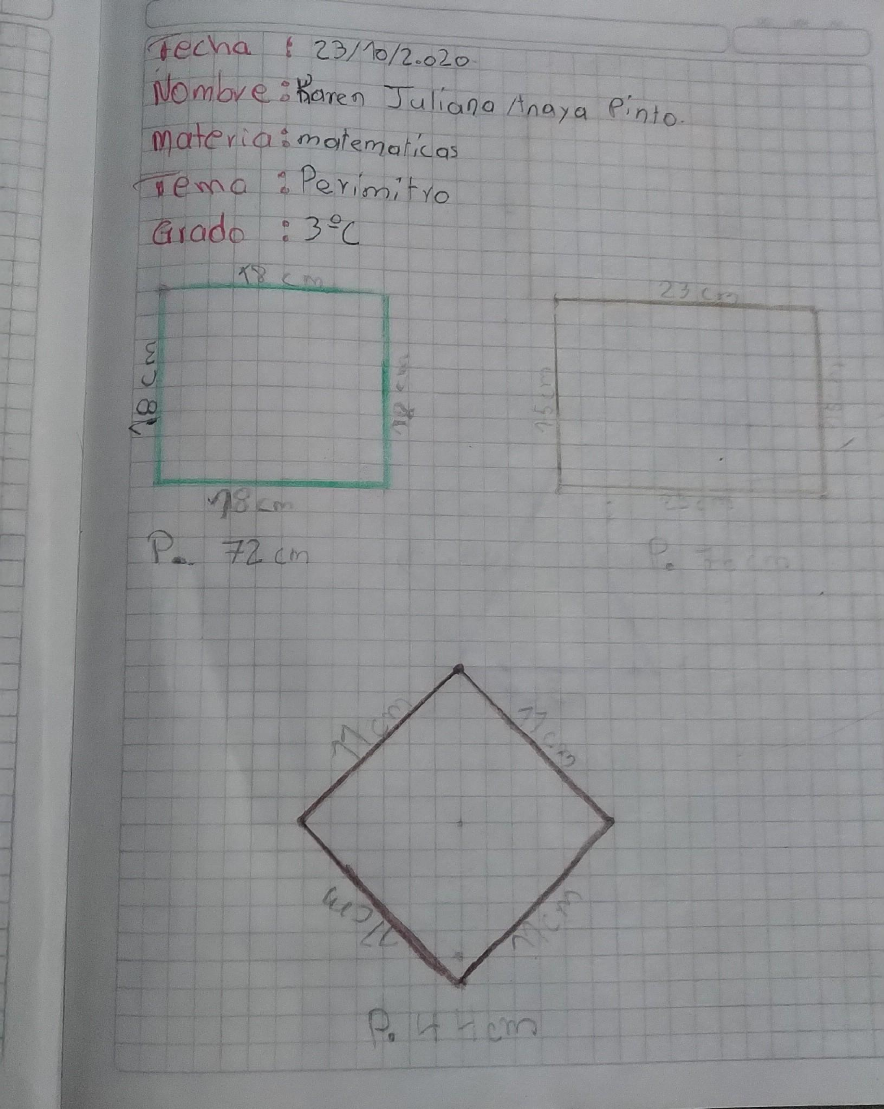 Fecha : 23/10/2.020
Nombre : Karen Juliana Anaya Pinto.
materia : matematicas
Tema : Perimitro
Grado : 3ºC
18 cm
18 cm
18 cm
18 cm
P. 72 cm
23 cm
15 cm
P.
11 cm
11 cm
11 cm
11 cm
P. 44 cm